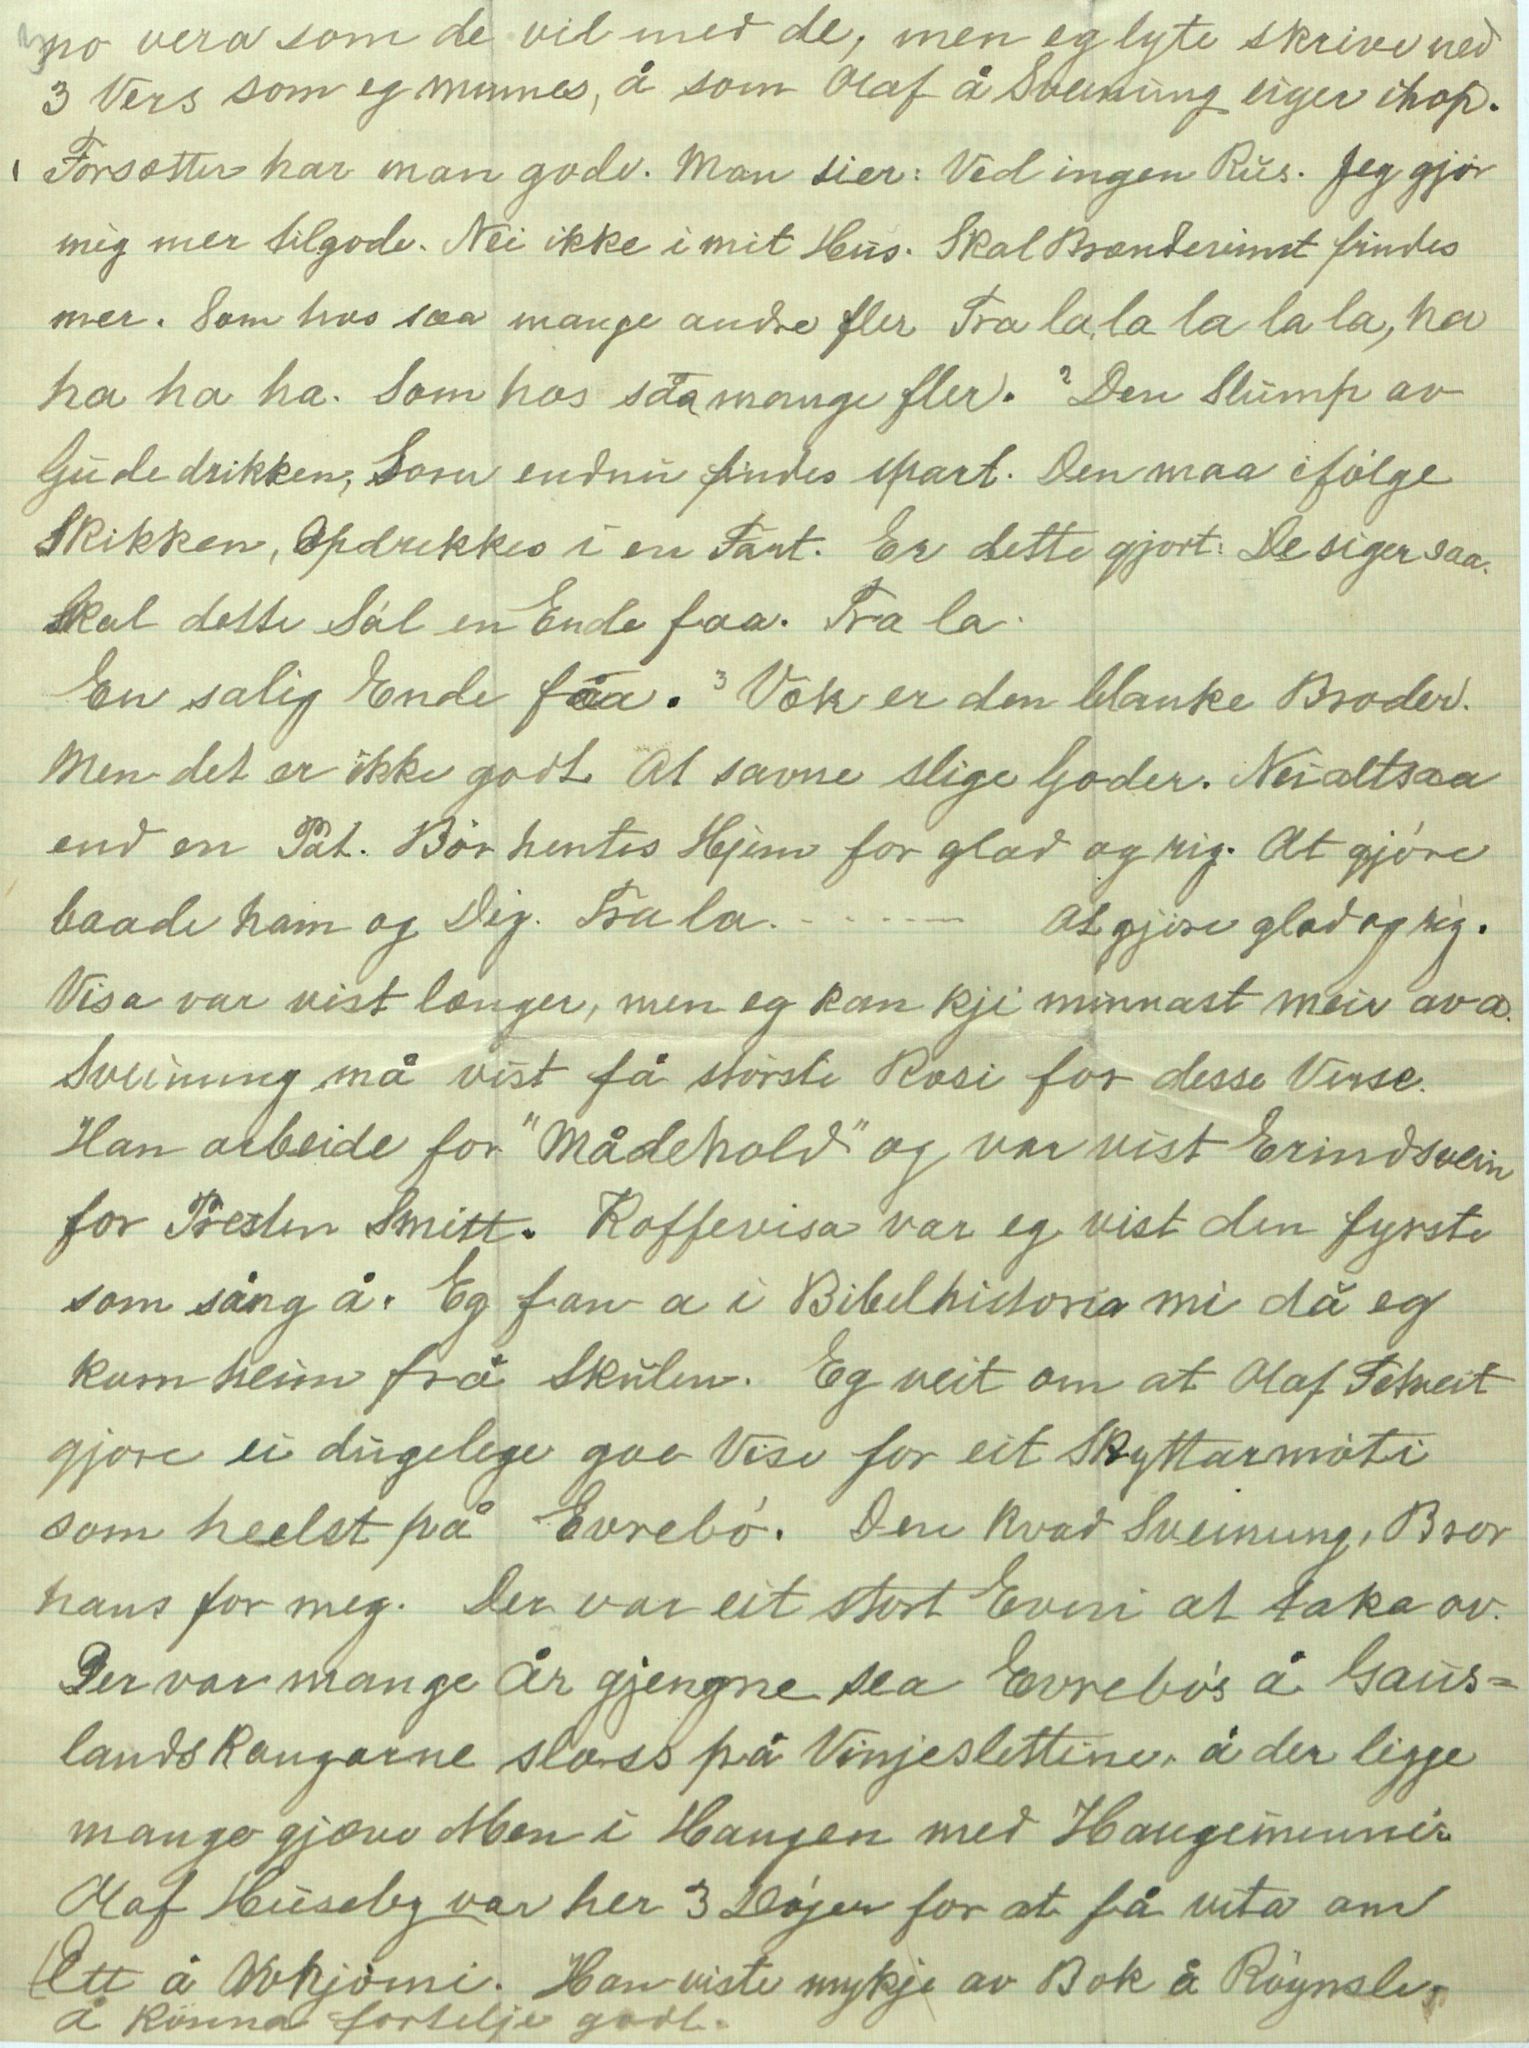 no vera som de vil med de, men eg lyte skrive ned
3 Vers som eg minnes, å som Olaf å Sveinung eiger ihop.
1 Forsætter har man gode. Man sier: Ved ingen Rus. Jeg gjör
mig mer tilgode. Nei ikke i mit Hus. Skal Brændeviint findes
mer. Som hos saa mange andre fler Tra la la la la la, ha
ha ha ha. Som hos saa mange fler. 2 Den Slump av
Gudedrikken, Som endnu findes part. Den maa ifölge
Skikken, Opdrikkes i en Fart. Er dette gjort: De siger saa.
Skal dette Söl en Ende faa. Tra la.
En salig Ende faa. 3 Væk er den blanke Broder.
Men det er ikke godt At savne slige Goder. Nei altsaa
end en Pot. Bör hentes Hjem for glad og rig. At gjöre
baade ham og Dig. Tra la. - - - - - - At gjöre glad og rig.
Visa var vist længer, men eg kan kji minnast meir av a.
Sveinung må vist få störste Rosi for desse Verse.
Han arbeide for "Mådehold" og var vist Erindsvein
for Presten Smitt. Kaffevisa var eg vist den fyrste
som sång å. Eg fan a i Bibelhistoria mi då eg
kom heim frå Skulen. Eg veit om at Olaf Tetveit
gjore ei dugelege goe Vise for eit Skyttarmöti
som heelst på Evrebö. Den kvad Sveinung, Bror
hans for meg. Der var eit stort Evni at taka av.
Der var mange År gjengne sea Evrebös å Gaus=
landskongarne sloss på Vinjeslettine, å der ligge
mange gjæve Men i Haugen med Haugeminnir.
Olaf Huseby var her 3 Döjer for at få vita om
Ett å Avkjömi. Han viste mykje av Bok å Röynsle,
å kunna fortelje godt.